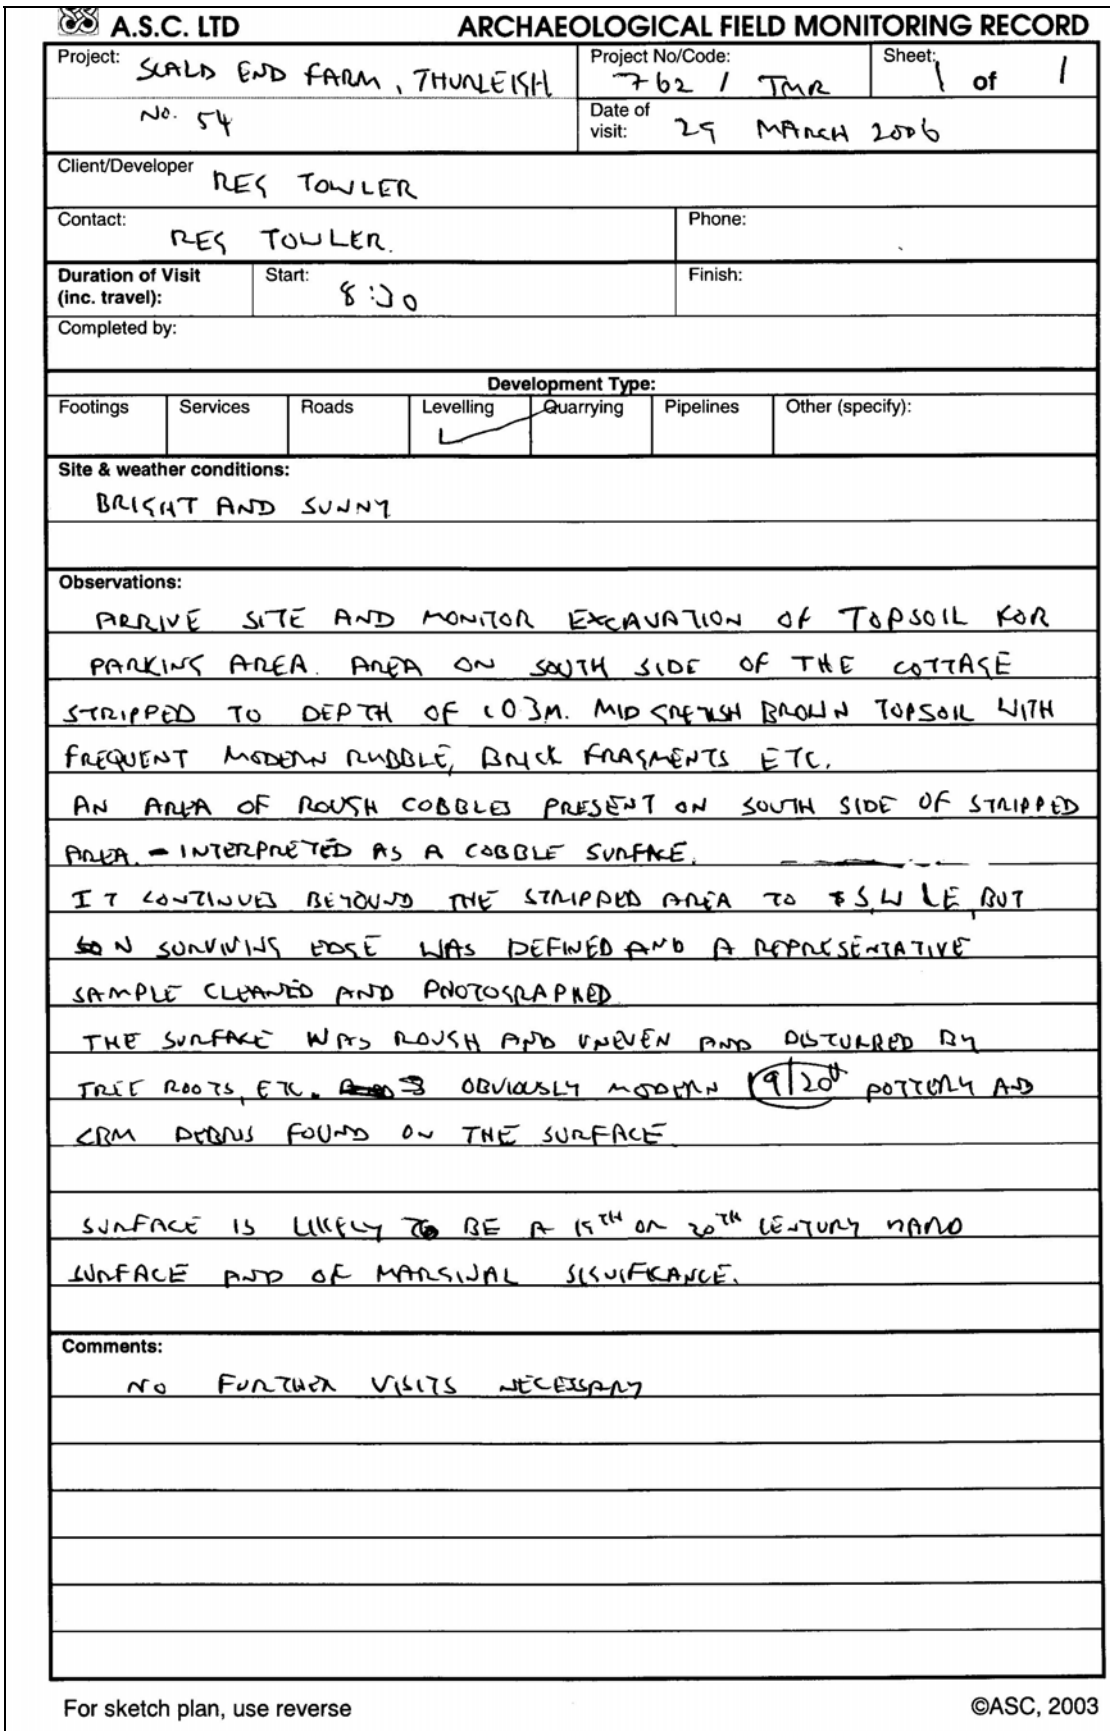 A.S.C. LTD ARCHAEOLOGICAL FIELD MONITORING RECORD
Project: SCALD END FARM, THURLEIGH
No. 54
Project No/Code: 762 / TMR
Sheet: 1 of 1
Date of visit: 29 MARCH 2006
Client/Developer REG TOWLER
Contact: REG TOWLER.
Phone:
Duration of Visit (inc. travel):
Start: 8:30
Finish:
Completed by:
Development Type:
Footings Services Roads Levelling Quarrying Pipelines Other (specify):
Site & weather conditions:
BRIGHT AND SUNNY
Observations:
ARRIVE SITE AND MONITOR EXCAVATION OF TOPSOIL FOR
PARKING AREA. AREA ON SOUTH SIDE OF THE COTTAGE
STRIPPED TO DEPTH OF 0.3M. MID GREYISH BROWN TOPSOIL WITH
FREQUENT MODERN RUBBLE, BRICK FRAGMENTS ETC.
AN AREA OF ROUGH COBBLES PRESENT ON SOUTH SIDE OF STRIPPED
AREA. - INTERPRETED AS A COBBLE SURFACE.
IT CONTINUES BEYOUND THE STRIPPED AREA TO S, W & E, BUT
N SURVIVING EDGE WAS DEFINED AND A REPRESENTATIVE
SAMPLE CLEANED AND PHOTOGRAPHED
THE SURFACE WAS ROUGH AND UNEVEN AND DISTURBED BY
TREE ROOTS, ETC. OBVIOUSLY MODERN 19/20th POTTERY AND
CBM DEBRIS FOUND ON THE SURFACE
SURFACE IS LIKELY TO BE A 19TH OR 20TH CENTURY HARD
SURFACE AND OF MARGINAL SIGNIFICANCE.
Comments:
NO FURTHER VISITS NECESSARY
For sketch plan, use reverse ©ASC, 2003